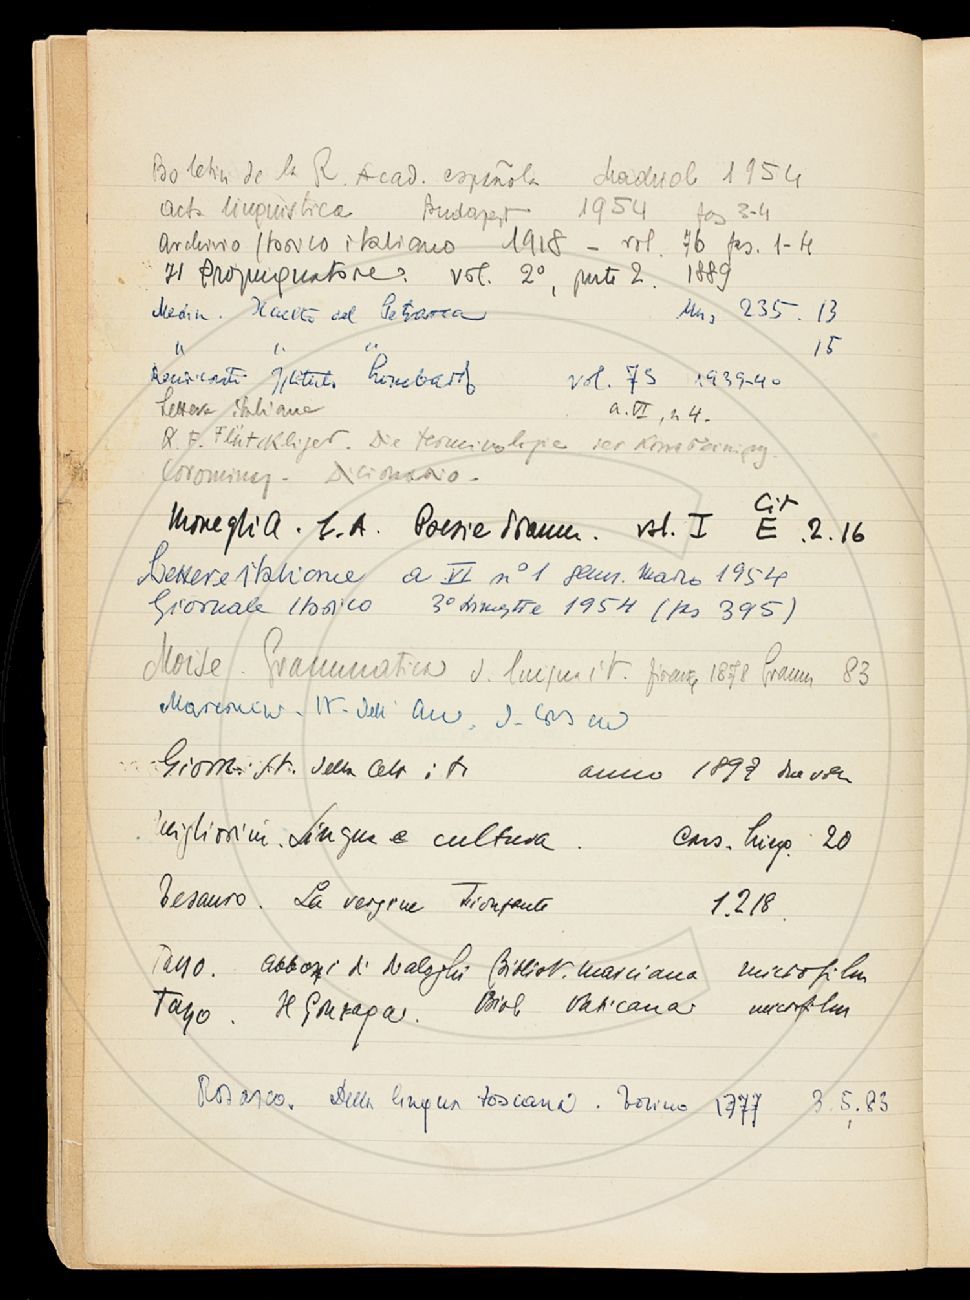 Boletin de la R. Acad. española Madrid 1954
Acta linguistica Budapest 1954 fas 3-4
Archivio storico italiano 1918 - vol. 76 fas. 1-4
Il Propugnatore. vol. 2°, parte 2. 1889
del Petrarca Mis, 235. 13
" " " 15
Istituto Lombardo vol. 73 1939-40
Lettere italiane a. VI, n 4.
Flückliger. Die Terminologie der
Corominas - Dicionario -
Moneglia. G. A. Poesie dramm. vol. I Cit E .2.16
Lettere italiane a VI n° 1 genn. marzo 1954
Giornale storico 3° trimestre 1954 (fas 395)
Moise. Grammatica d. lingua it. Firenze 1878 Gramm 83
Giorn. st. della lett it anno 1897
Migliorini. Lingua e cultura. Cons. ling. 20
Tesauro. La vergine trionfante 1.218.
Tasso. abbozzi di dialoghi Bibliot. Marciana microfilm
Tasso. Il Gonzaga. Bibl Vaticana microfilm
Rosasco. Della lingua toscana. Torino 1777 3.5.83